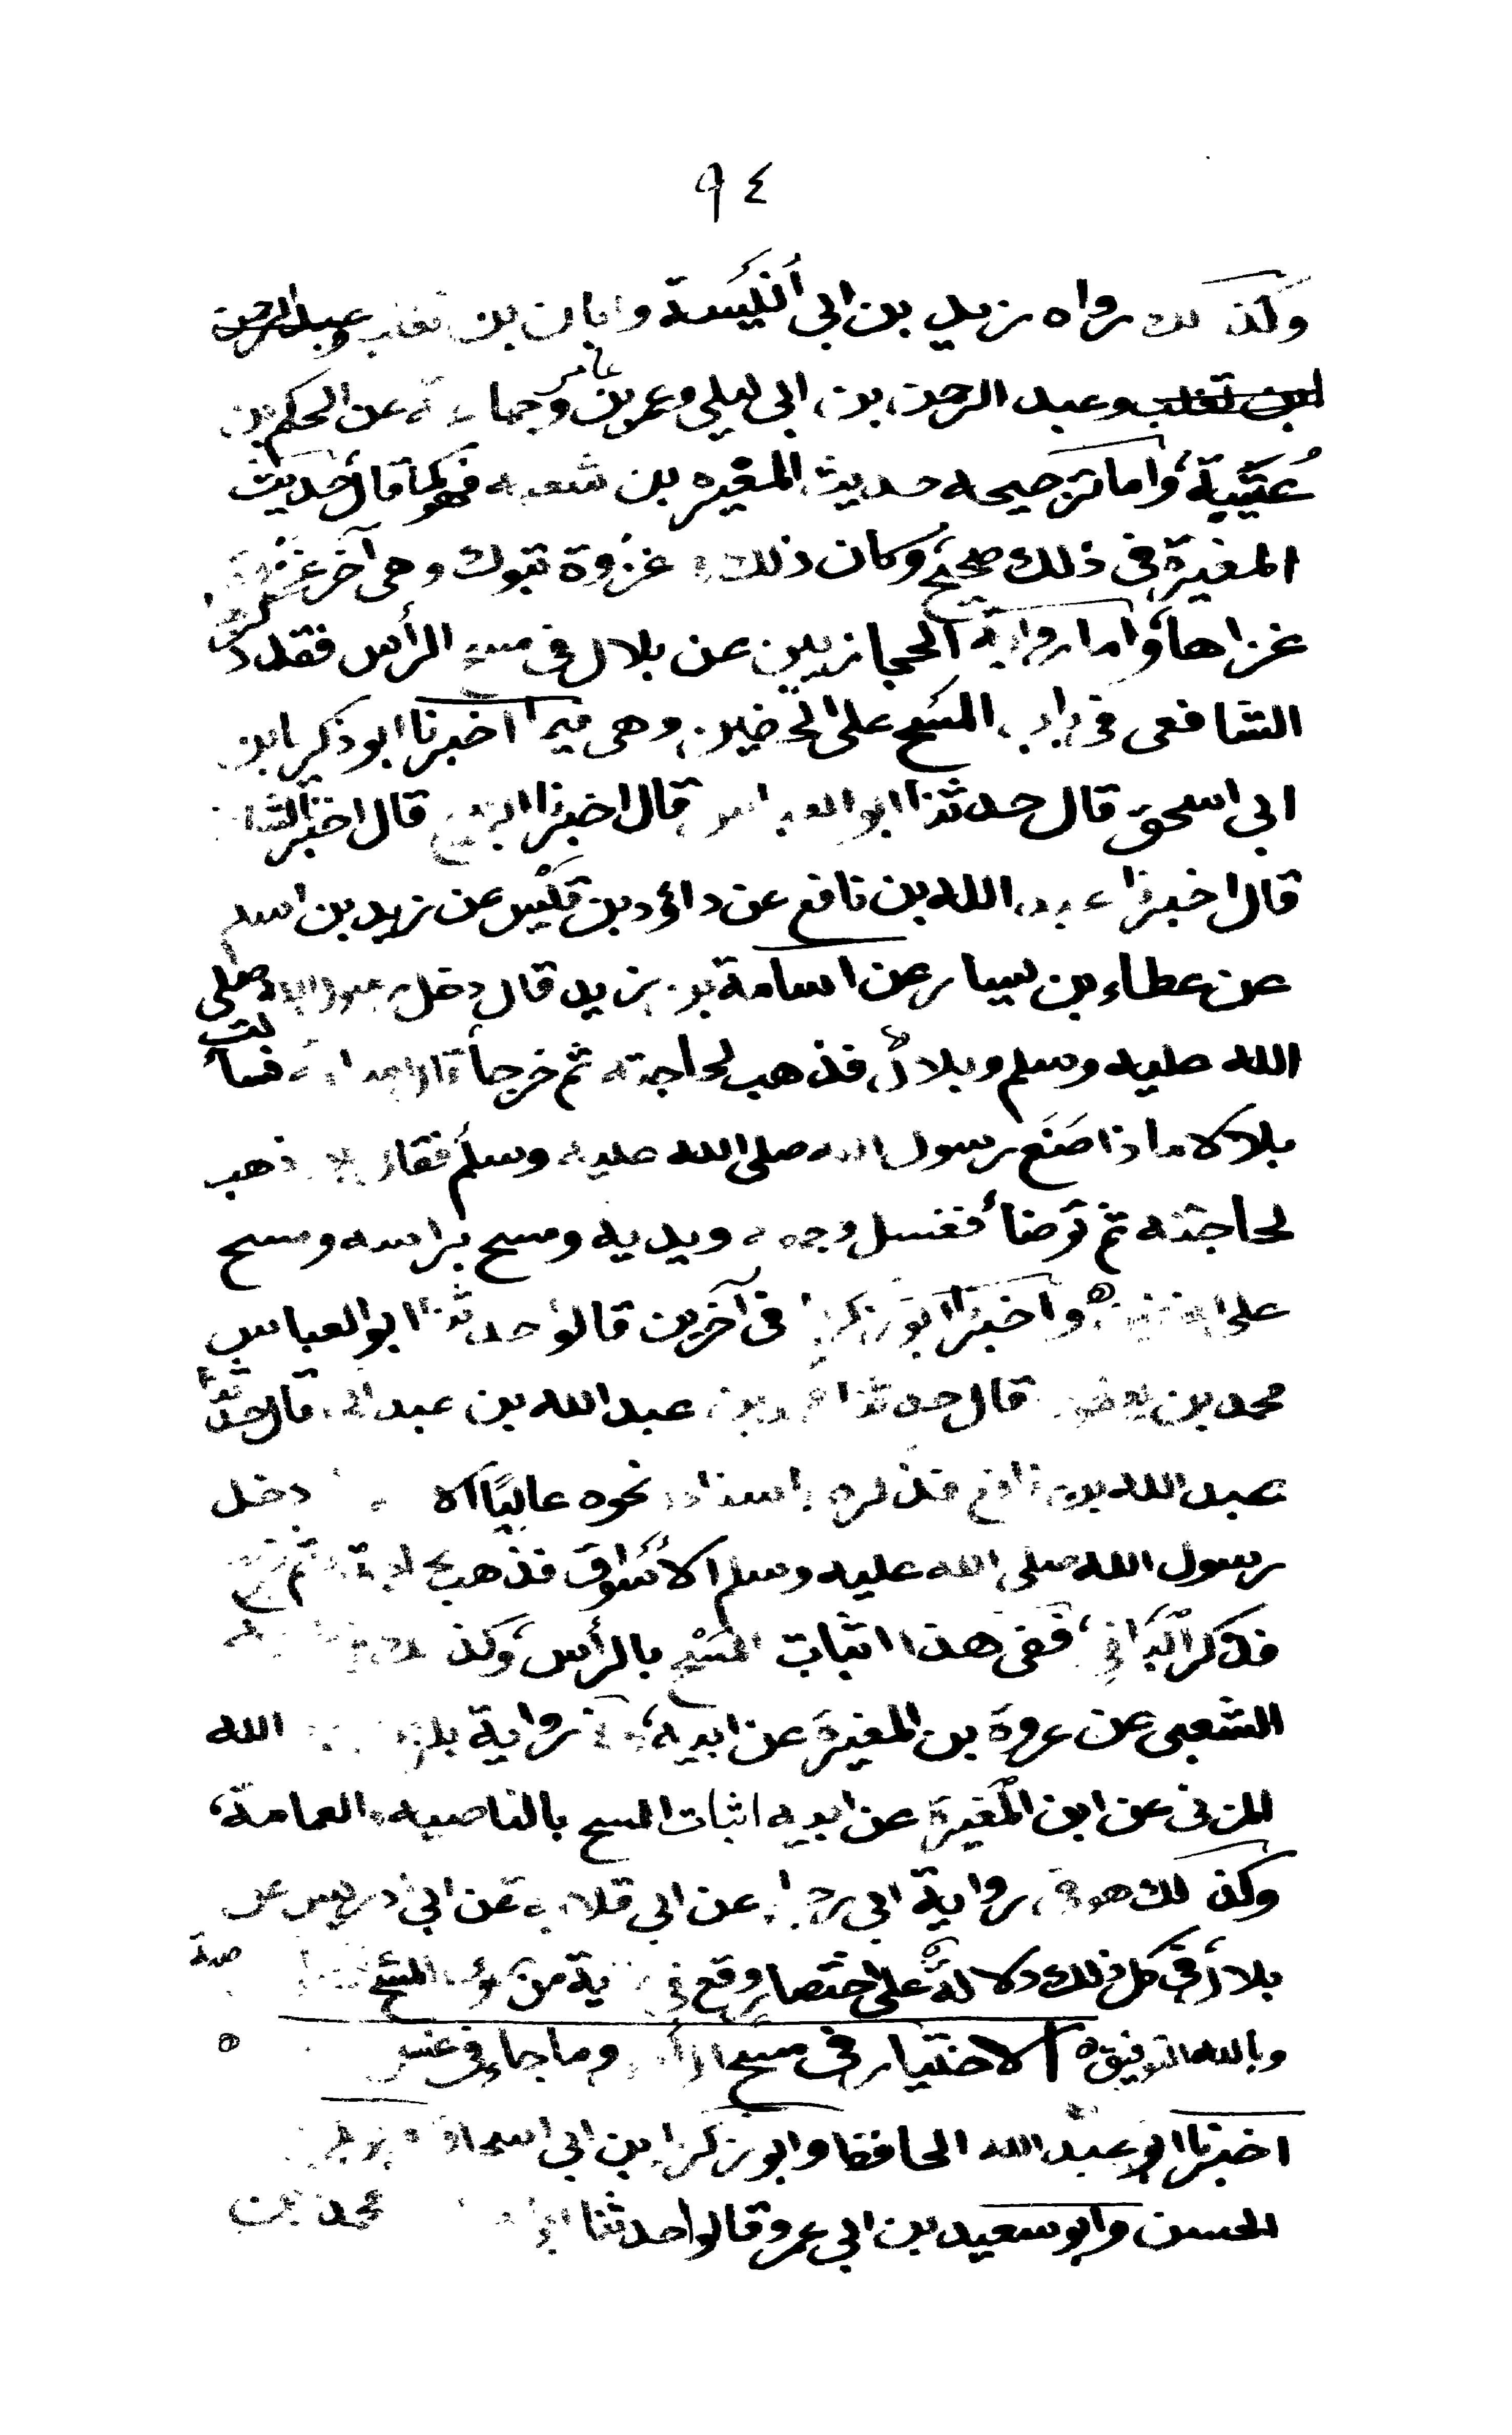 ٩٤
وكذلك رواه زيد بن ابى أُنَيْسَة وابان بن تغلب وعبد الرحمن
بن تغلب وعبد الرحمن بن ابى ليلى وعمر بن عامر وجماعة عن الحكم بن
عُتَيْبة، واما ترجيحه حديث المغيره بن شعبه فهو كما قال حديث
المغيرة فى ذلك صحيح وكان ذلك غزوة تبوك وهى آخر غزوة
غزاها، واما رواية الحجازيين عن بلال فى مسح الرأس فقد ذكرها
الشافعى فى باب المسح على الخفين وهى فيما اخبرنا ابو زكريا بن
ابى اسحق قال حدثنا ابو العباس قال اخبرنا الربيع قال اخبرنا الشافعى
قال اخبرنا عبد الله بن نافع عن داؤد بن قيس عن زيد بن اسلم
عن عطاء بن يسار عن اسامة بن زيد قال دخل رسول الله صلى
الله عليه وسلم وبلال فذهب لحاجته ثم خرجا قال اسامة فسألت
بلالا ماذا صَنَع رسول الله صلى الله عليه وسلم فقال بلال ذهب
لحاجته ثم توضأ فغسل وجهه ويديه ومسح براسه ومسح
على الخفين ه واخبرنا ابو زكريا فى آخرين قالوا حدثنا ابو العباس
محمد بن يعقوب قال حدثنا محمد بن عبد الله بن عبد الحكم قال حدثنا
عبد الله بن نافع فذكره باسناده نحوه عاليًا الا دخل
رسول الله صلى الله عليه وسلم الأسْوَاق فذهب لحاجته ثم خرج
فذكر الباقى، ففى هذا اثبات المسْح بالرأس، وكذلك
الشعبى عن عروة بن المغيرة عن ابيه، وفى رواية بكر بن عبد الله
المزنى عن ابن المُغيرة عن ابيه اثبات المسح بالناصيه والعمامة،
وكذلك هو فى رواية ابى رجاء عن ابى قلابة عن ابى ادريس عن
بلال، فى كل ذلك دلالةٌ على اختصار وقع فى رواية من روى المسْح
وبالله التوفيق ه الاختيار فى مسح الرأس وما جاء فى غسل
اخبرنا ابو عبد الله الحافظ وابو زكريا بن ابى اسحاق
الحسن وابو سعيد بن ابى عمرو قالوا حدثنا محمد بن